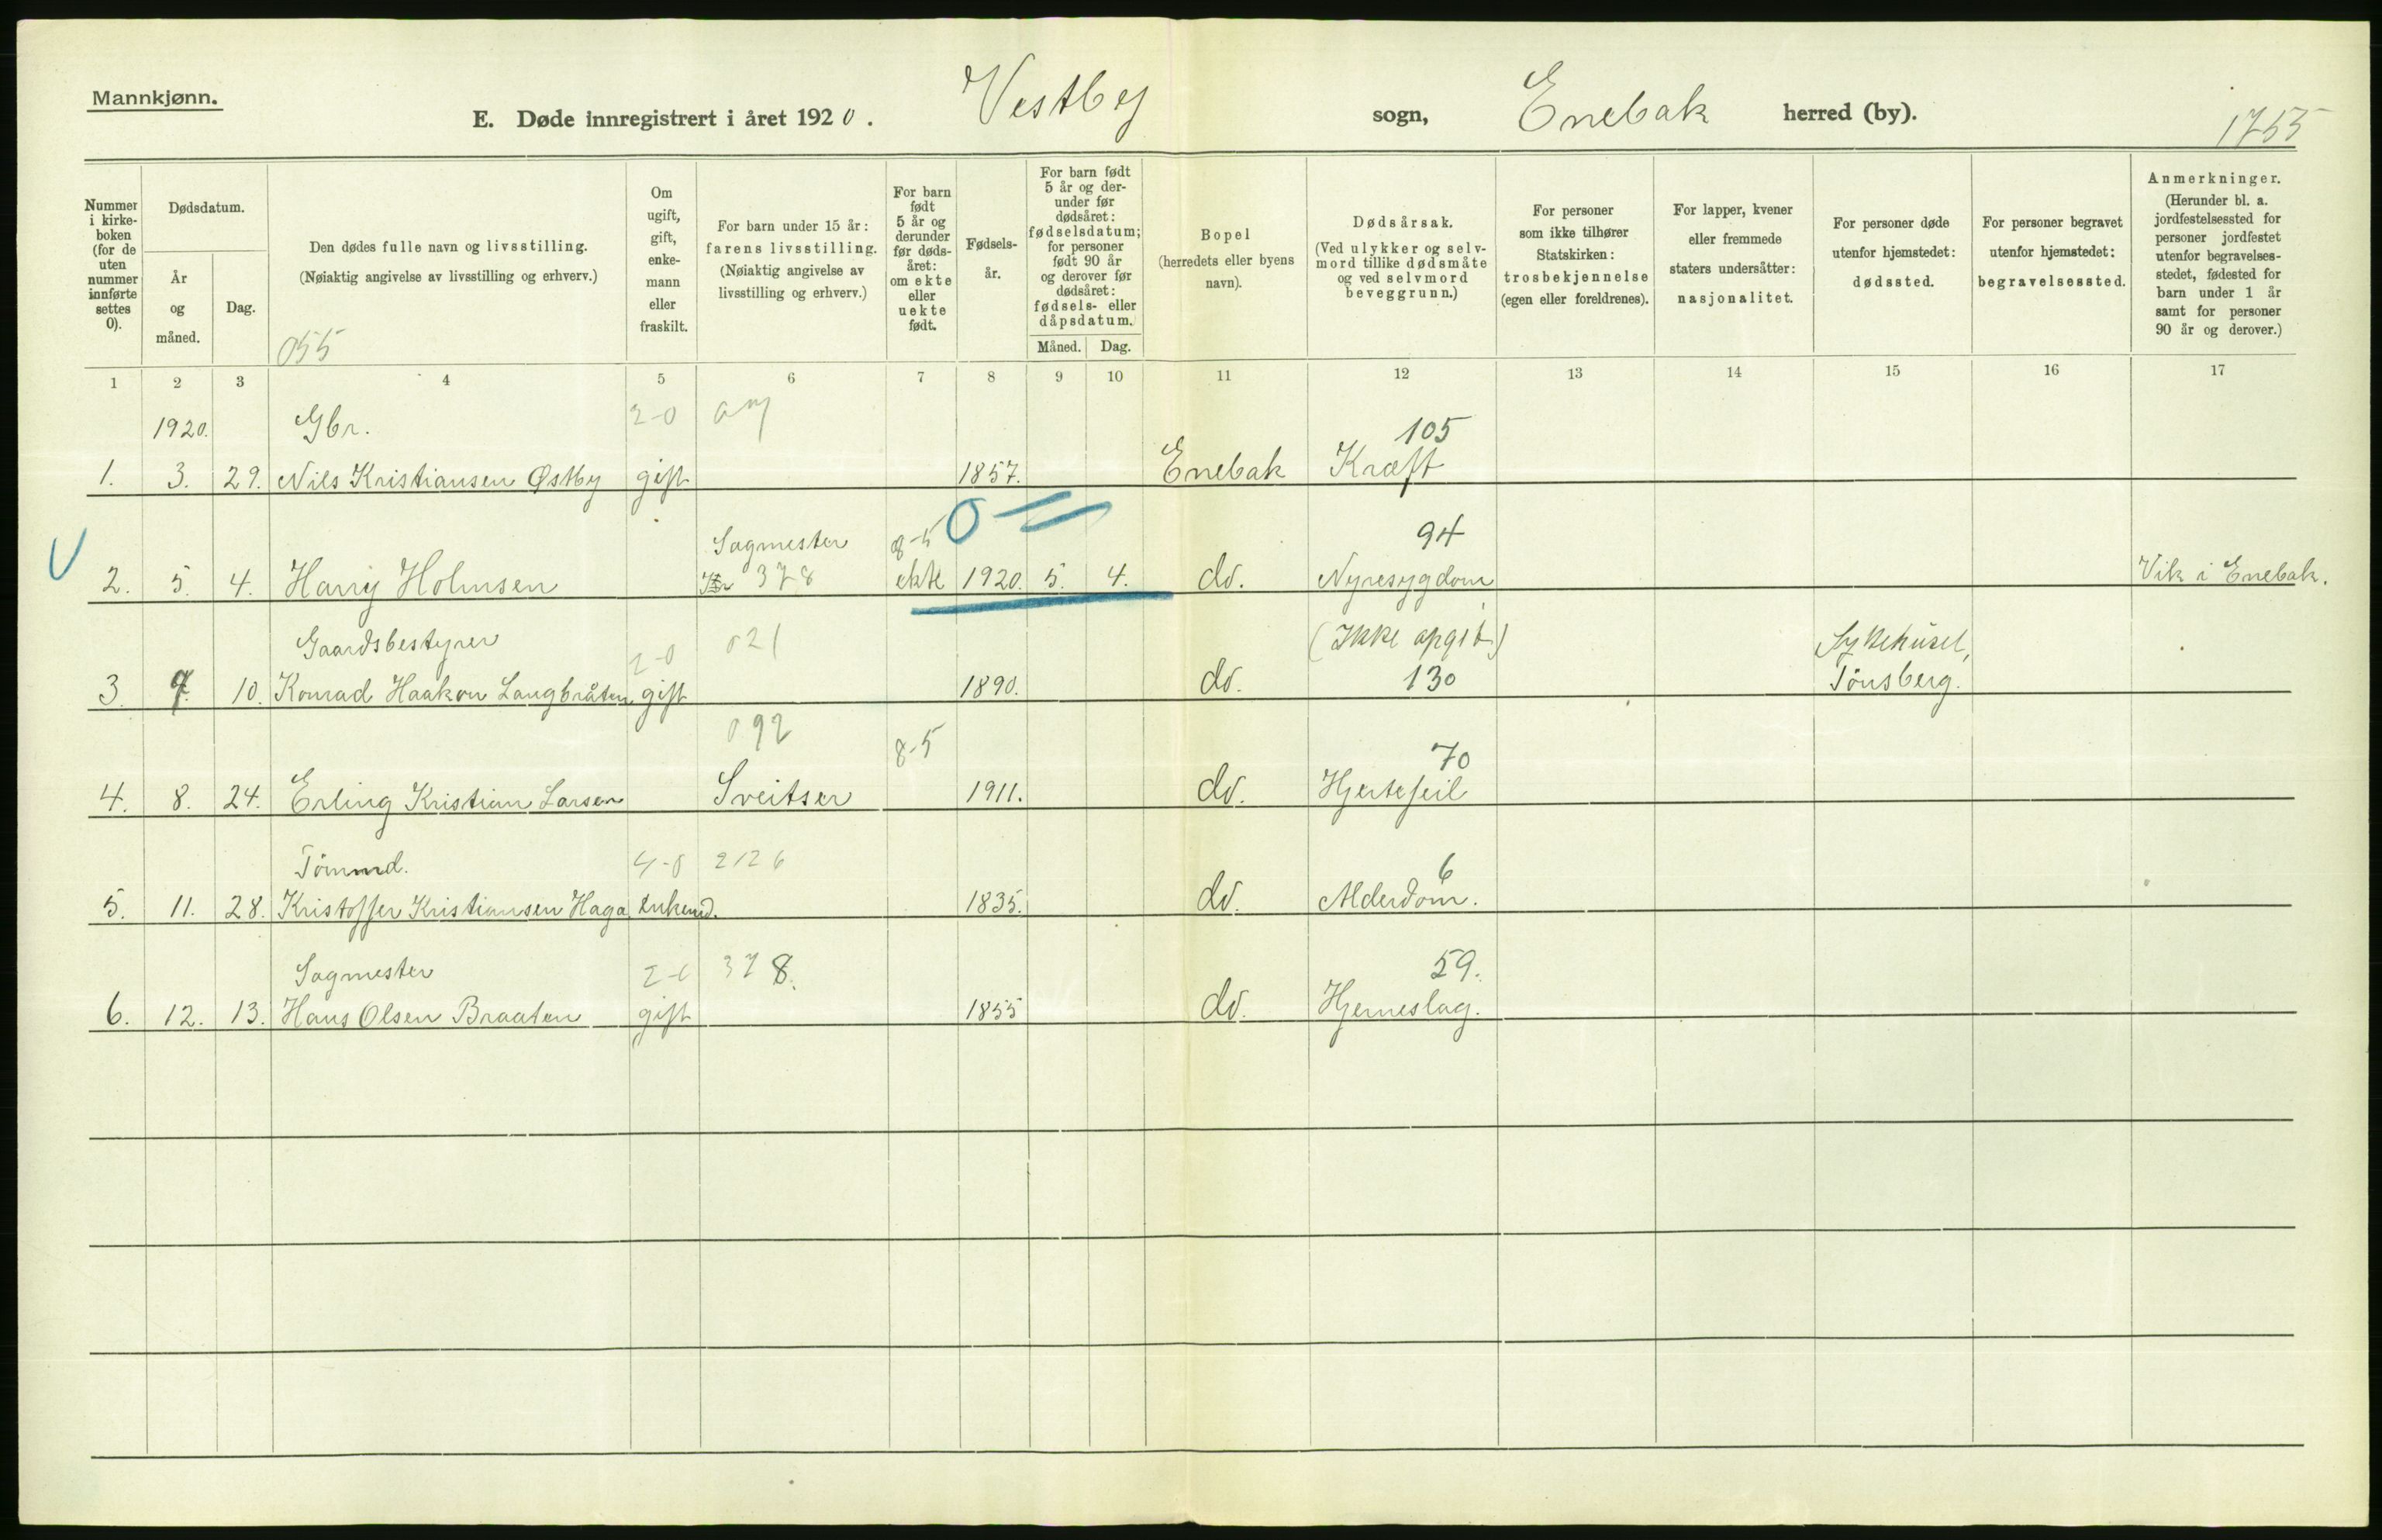 Mannkjønn.
E. Døde innregistrert i året 1920.
Vestby sogn, Enebak herred (by).
1755
Nummer i kirke-boken (for de uten nummer innførte settes 0).
Dødsdatum.
År og måned.
Dag.
Den dødes fulle navn og livsstilling.
(Nøiaktig angivelse av livsstilling og erhverv.)
055
Om ugift, gift, enke-mann eller fraskilt.
For barn under 15 år: farens livsstilling.
(Nøiaktig angivelse av livsstilling og erhverv.)
For barn født 5 år og derunder før døds-året: om ekte eller uekte født.
Fødsels-år.
For barn født 5 år og der-under før dødsåret: fødselsdatum; for personer født 90 år og derover før dødsåret: fødsels- eller dåpsdatum.
Måned. Dag.
Bopel
(herredets eller byens navn).
Dødsårsak.
(Ved ulykker og selv-mord tillike dødsmåte og ved selvmord beveggrunn.)
For personer som ikke tilhører Statskirken: trosbekjennelse (egen eller foreldrenes).
For lapper, kvener eller fremmede staters undersåtter: nasjonalitet.
For personer døde utenfor hjemstedet: dødssted.
For personer begravet utenfor hjemstedet: begravelsessted.
Anmerkninger.
(Herunder bl. a. jordfestelsessted for personer jordfestet utenfor begravelses-stedet, fødested for barn under 1 år samt for personer 90 år og derover.)
1 2 3 4 5 6 7 8 9 10 11 12 13 14 15 16 17
1920. Gbr. 2-0 105
1. 3. 29. Nils Kristiansen Østby gift 1857. Enebak Kræft
Sagmester 8-5 0 94
2. 5. 4. Harry Holmsen 378 ekte 1920. 5. 4. do. Nyresygdom Vik i Enebak.
Gaardsbestyrer 2-0 021 (Ikke opgit) Sykehuset,
3. 9. 10. Konrad Haakon Langbråten gift 1890. do. 130 Tönsberg.
092 8-5 70
4. 8. 24. Erling Kristian Larsen Sveitser 1911. do. Hjertefeil
Tömmd. 4-0 2126 6
5. 11. 28. Kristoffer Kristiansen Haga Enkemd. 1835. do. Alderdom.
Sagmester 2-0 378. 59.
6. 12. 13. Hans Olsen Braaten gift 1855 do. Hjerneslag.